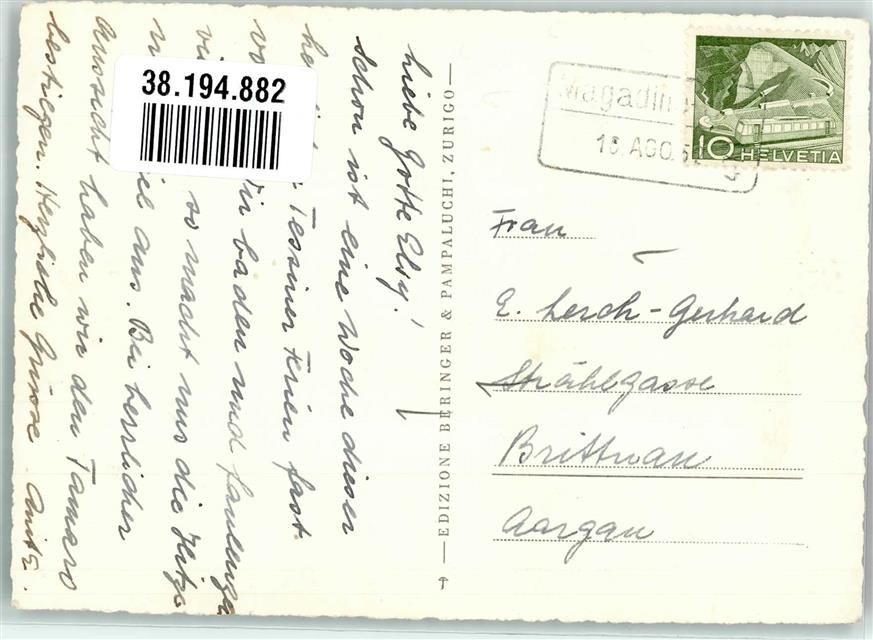 Liebe Gotte Elsy!
Schon ist eine Woche dieser
Tessiner Ferien fast
Wir baden und faulenzen
so macht uns die Hitze
aus. Bei herrlicher
Aussicht haben wir den Tamaro
bestiegen. Herzliche Grüsse Anita.
38.194.882
EDIZIONE BERINGER & PAMPALUCHI, ZURIGO
Magadin
AGO.
10 HELVETIA
Frau
E. Lerch-Gerhard
Strählgasse
Brittnau
Aargau